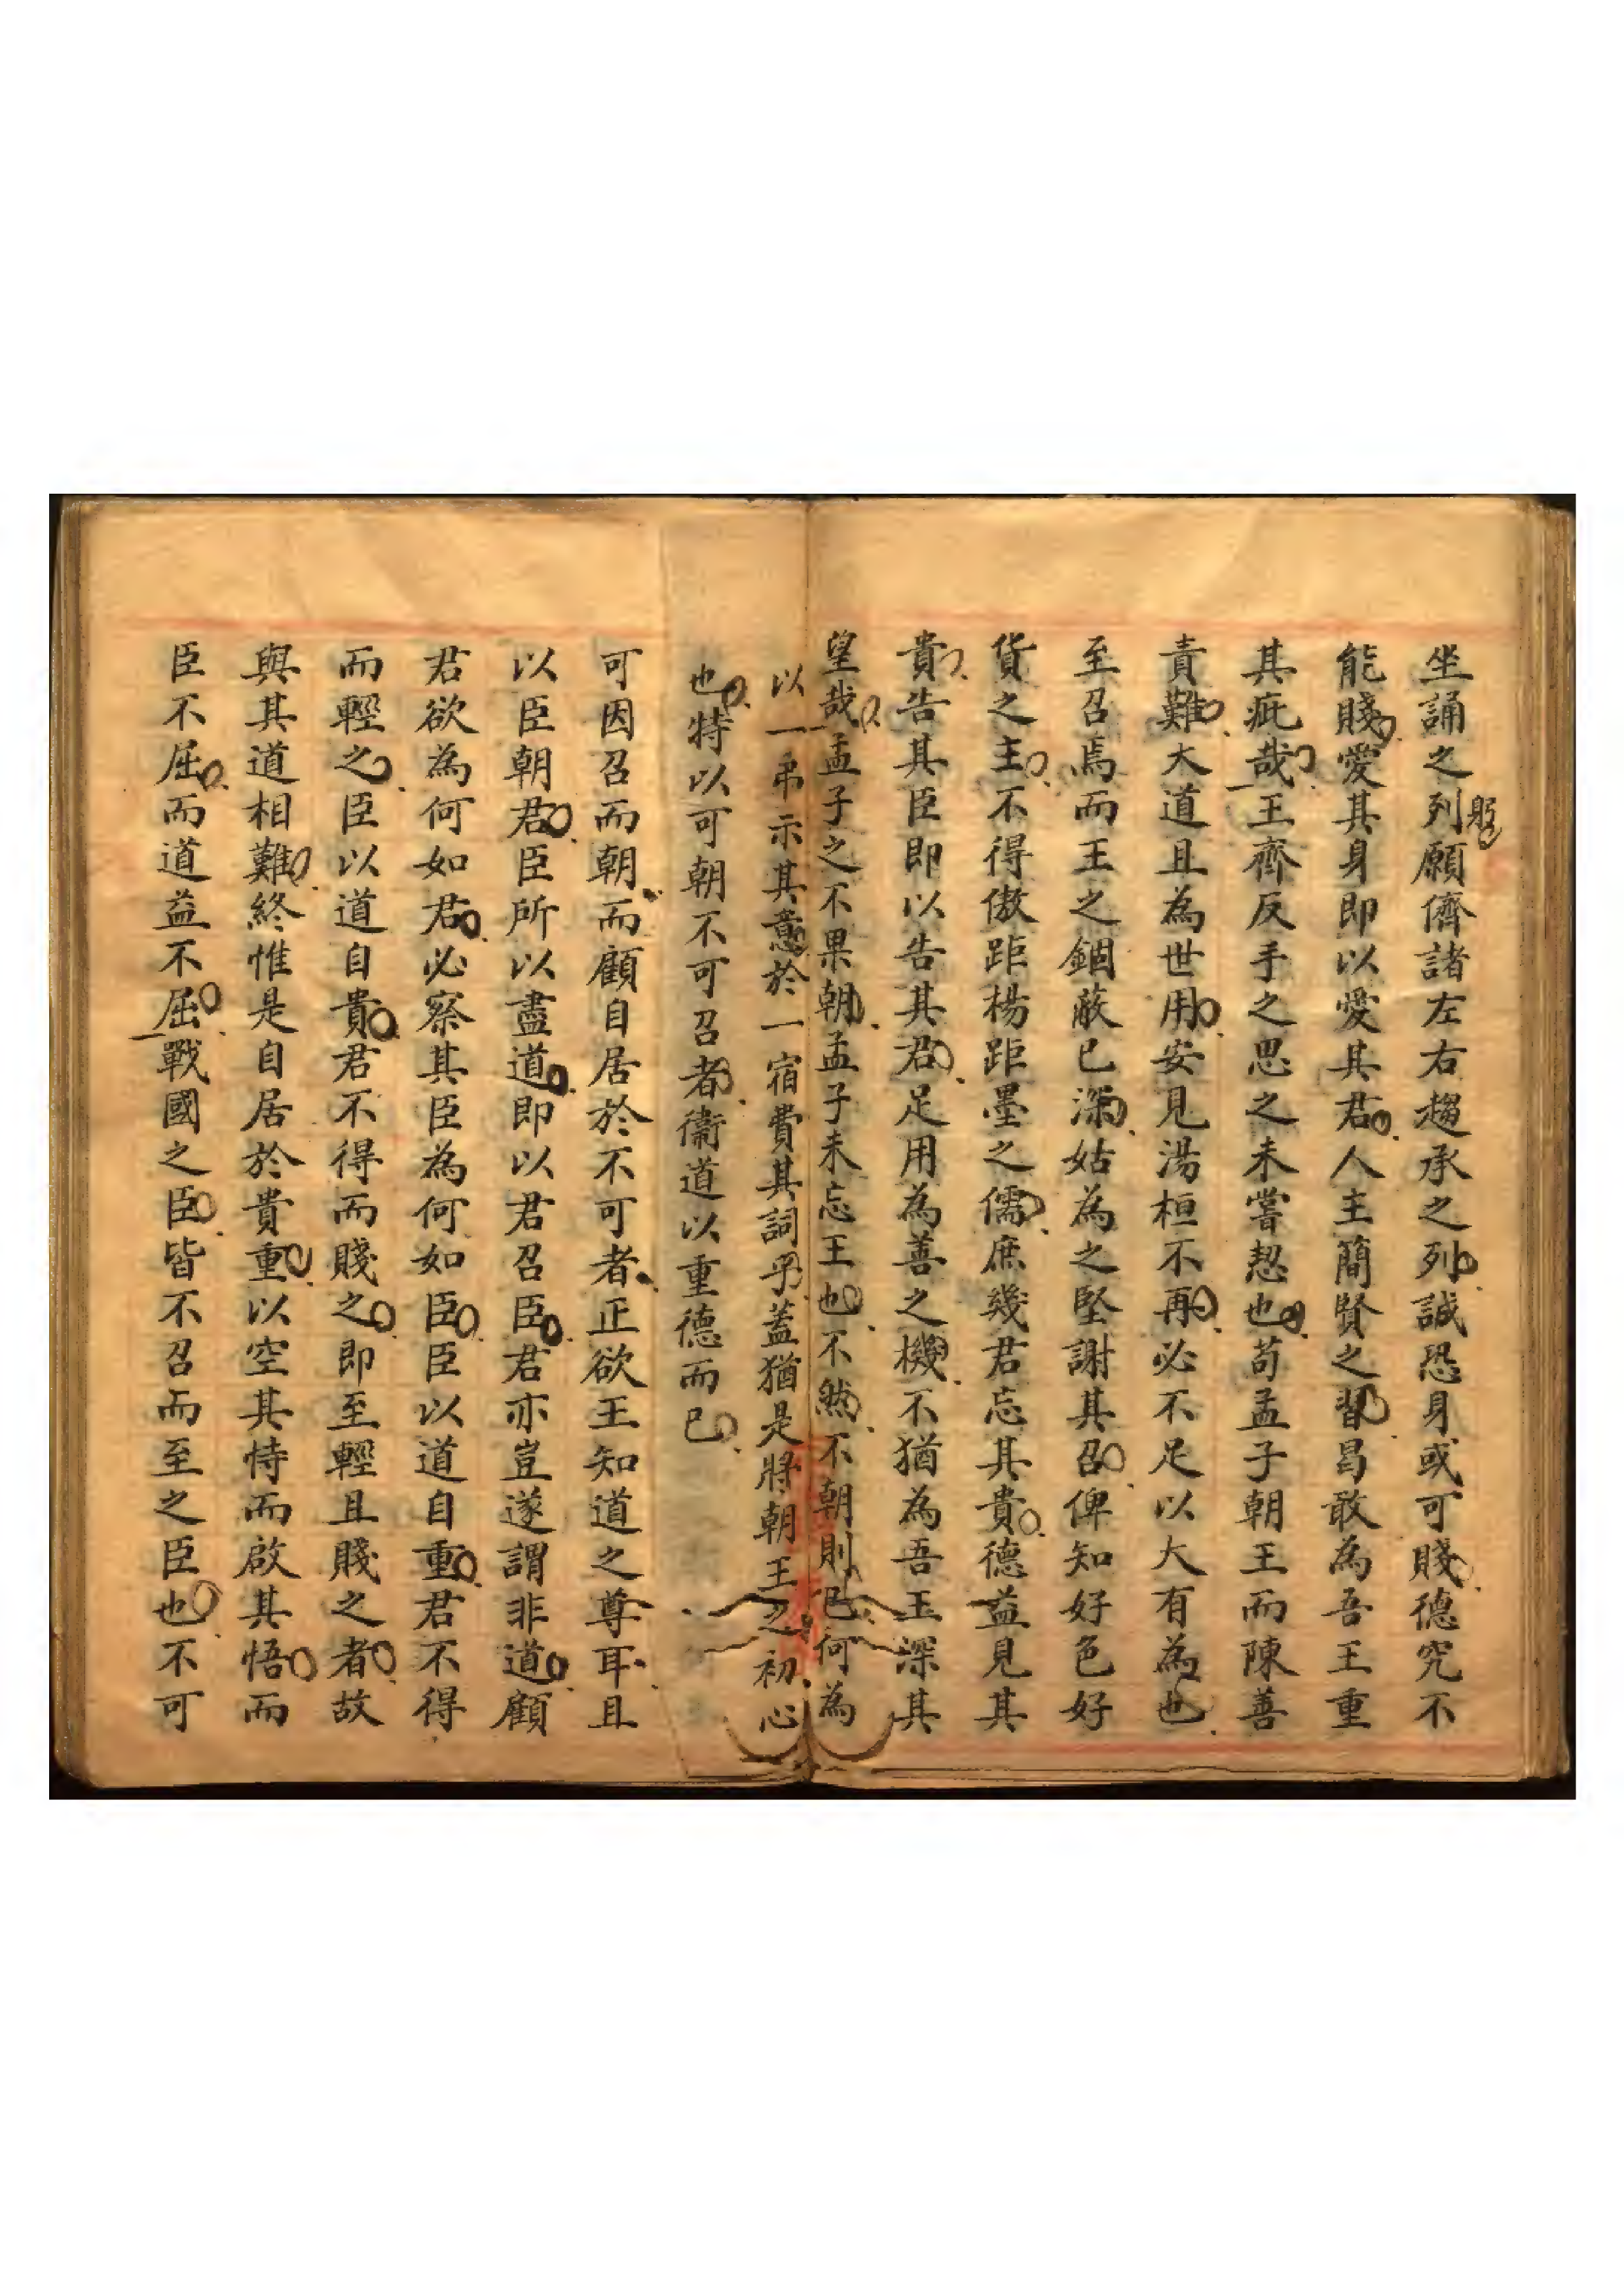 坐誦之列願儕諸左右趨承之列誠恐身或可賤德究不
能賤愛其身即以愛其君人主簡賢之習曷敢為吾王重
其疵哉王齊反手之思之未嘗恝也苟孟子朝王而陳善
責難大道且為世用安見湯桓不再必不足以大有為也
至召焉而王之錮蔽已深姑為之堅謝其召俾知好色好
貨之主不得傲距楊距墨之儒庶幾君忘其貴德益見其
貴告其臣即以告其君足用為善之機不猶為吾王深其
望哉孟子之不果朝孟子未忘王也不然不朝則已何為
以一弔示其意於一宿費其詞乎蓋猶是將朝王之初心
也特以可朝不可召者衞道以重德而已
可因召而朝而顧自居於不可者正欲王知道之尊耳且
以臣朝君臣所以盡道即以君召臣君亦豈遂謂非道顧
君欲為何如君必察其臣為何如臣臣以道自重君不得
而輕之臣以道自貴君不得而賤之即至輕且賤之者故
與其道相難終惟是自居於貴重以空其恃而啟其悟而
臣不屈而道益不屈戰國之臣皆不召而至之臣也不可